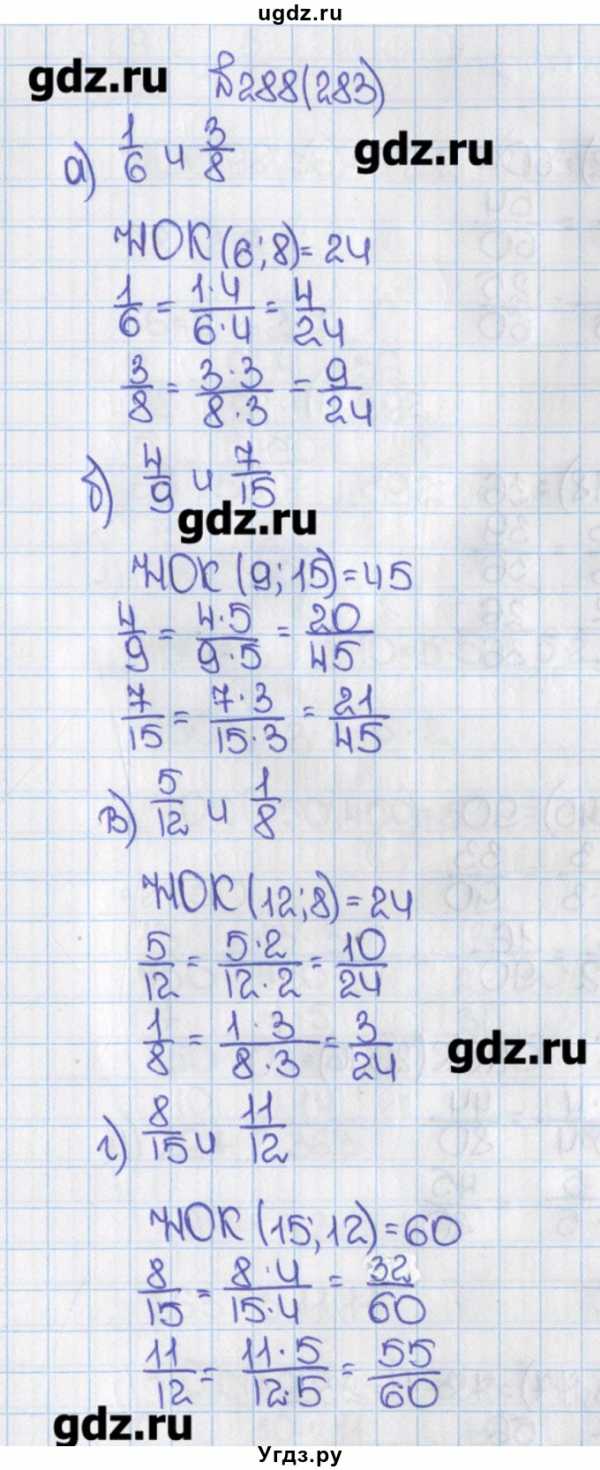 ugdz.ru
gdz.ru
№288(283)
а) 1/6 и 3/8
gdz.ru
НОК (6; 8) = 24
1/6 = 1·4/6·4 = 4/24
3/8 = 3·3/8·3 = 9/24
б) 4/9 и 7/15
gdz.ru
НОК (9; 15) = 45
4/9 = 4·5/9·5 = 20/45
7/15 = 7·3/15·3 = 21/45
в) 5/12 и 1/8
НОК (12; 8) = 24
5/12 = 5·2/12·2 = 10/24
1/8 = 1·3/8·3 = 3/24
gdz.ru
г) 8/15 и 11/12
НОК (15; 12) = 60
8/15 = 8·4/15·4 = 32/60
11/12 = 11·5/12·5 = 55/60
gdz.ru
Угдз.ру